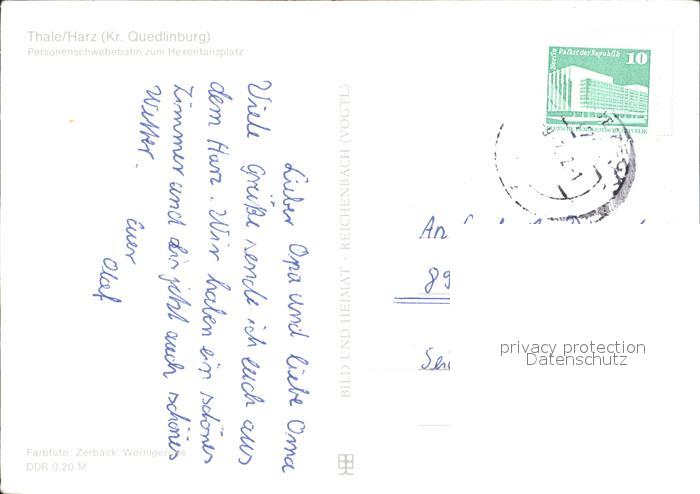 Thale/Harz (Kr. Quedlinburg)
Personenschwebebahn zum Hexentanzplatz
Lieber Opa und liebe Oma
Viele Grüße sende ich euch aus
dem Harz. Wir haben ein schönes
Zimmer und jetzt auch schönes
Wetter.
Euer
Olaf
Farbfoto: Zerback, Wernigerode
DDR 0,20 M
BILD UND HEIMAT · REICHENBACH (VOGTL)
Berlin Palast der Republik
10
DEUTSCHE DEMOKRATISCHE REPUBLIK
An
89
privacy protection
Datenschutz